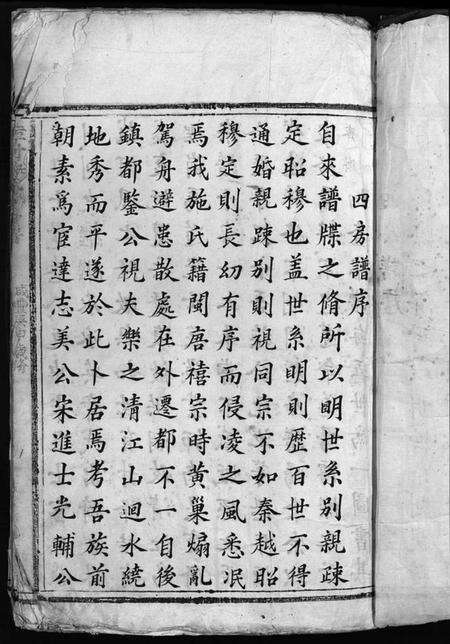 四房譜序
自來譜牒之脩所以明世系別親疎
定昭穆也盖世系明則歴百世不得
通婚親疎别則視同宗不如秦越昭
穆定則長幼有序而侵凌之風悉泯
焉我施氏籍閩唐禧宗時黃巢煽亂
駕舟避患散處在外遷都不一自後
鎮都鑒公視夫樂之清江山迴水繞
地秀而平遂於此卜居焉考吾族前
朝素爲宦達志美公宋進士光輔公